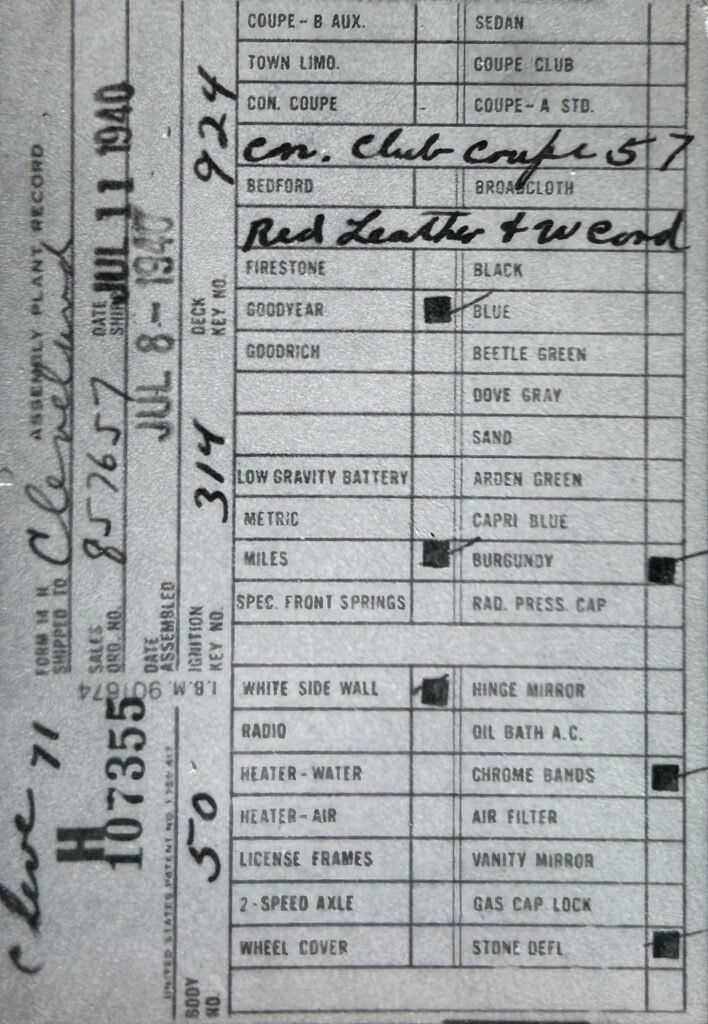 COUPE - B AUX. SEDAN
TOWN LIMO. COUPE CLUB
CON. COUPE COUPE - A STD.
Con. Club Coupe 57
BEDFORD BROADCLOTH
Red Leather + W Cord
FIRESTONE BLACK
GOODYEAR BLUE
GOODRICH BEETLE GREEN
DOVE GRAY
SAND
LOW GRAVITY BATTERY ARDEN GREEN
METRIC CAPRI BLUE
MILES BURGUNDY
SPEC. FRONT SPRINGS RAD. PRESS. CAP
WHITE SIDE WALL HINGE MIRROR
RADIO OIL BATH A.C.
HEATER - WATER CHROME BANDS
HEATER - AIR AIR FILTER
LICENSE FRAMES VANITY MIRROR
2 - SPEED AXLE GAS CAP LOCK
WHEEL COVER STONE DEFL
FORM 14 H ASSEMBLY PLANT, RECORD
SHIPPED TO Cleveland
SALES ORD. NO. 857657 DATE SHIP JUL 11 1940
DATE ASSEMBLED JUL 8 - 1940
IGNITION KEY NO. 314 DECK KEY NO. 924
I.B.M. 901674
Cleve 71
H
107355
UNITED STATES PATENT NO.
BODY NO. 50